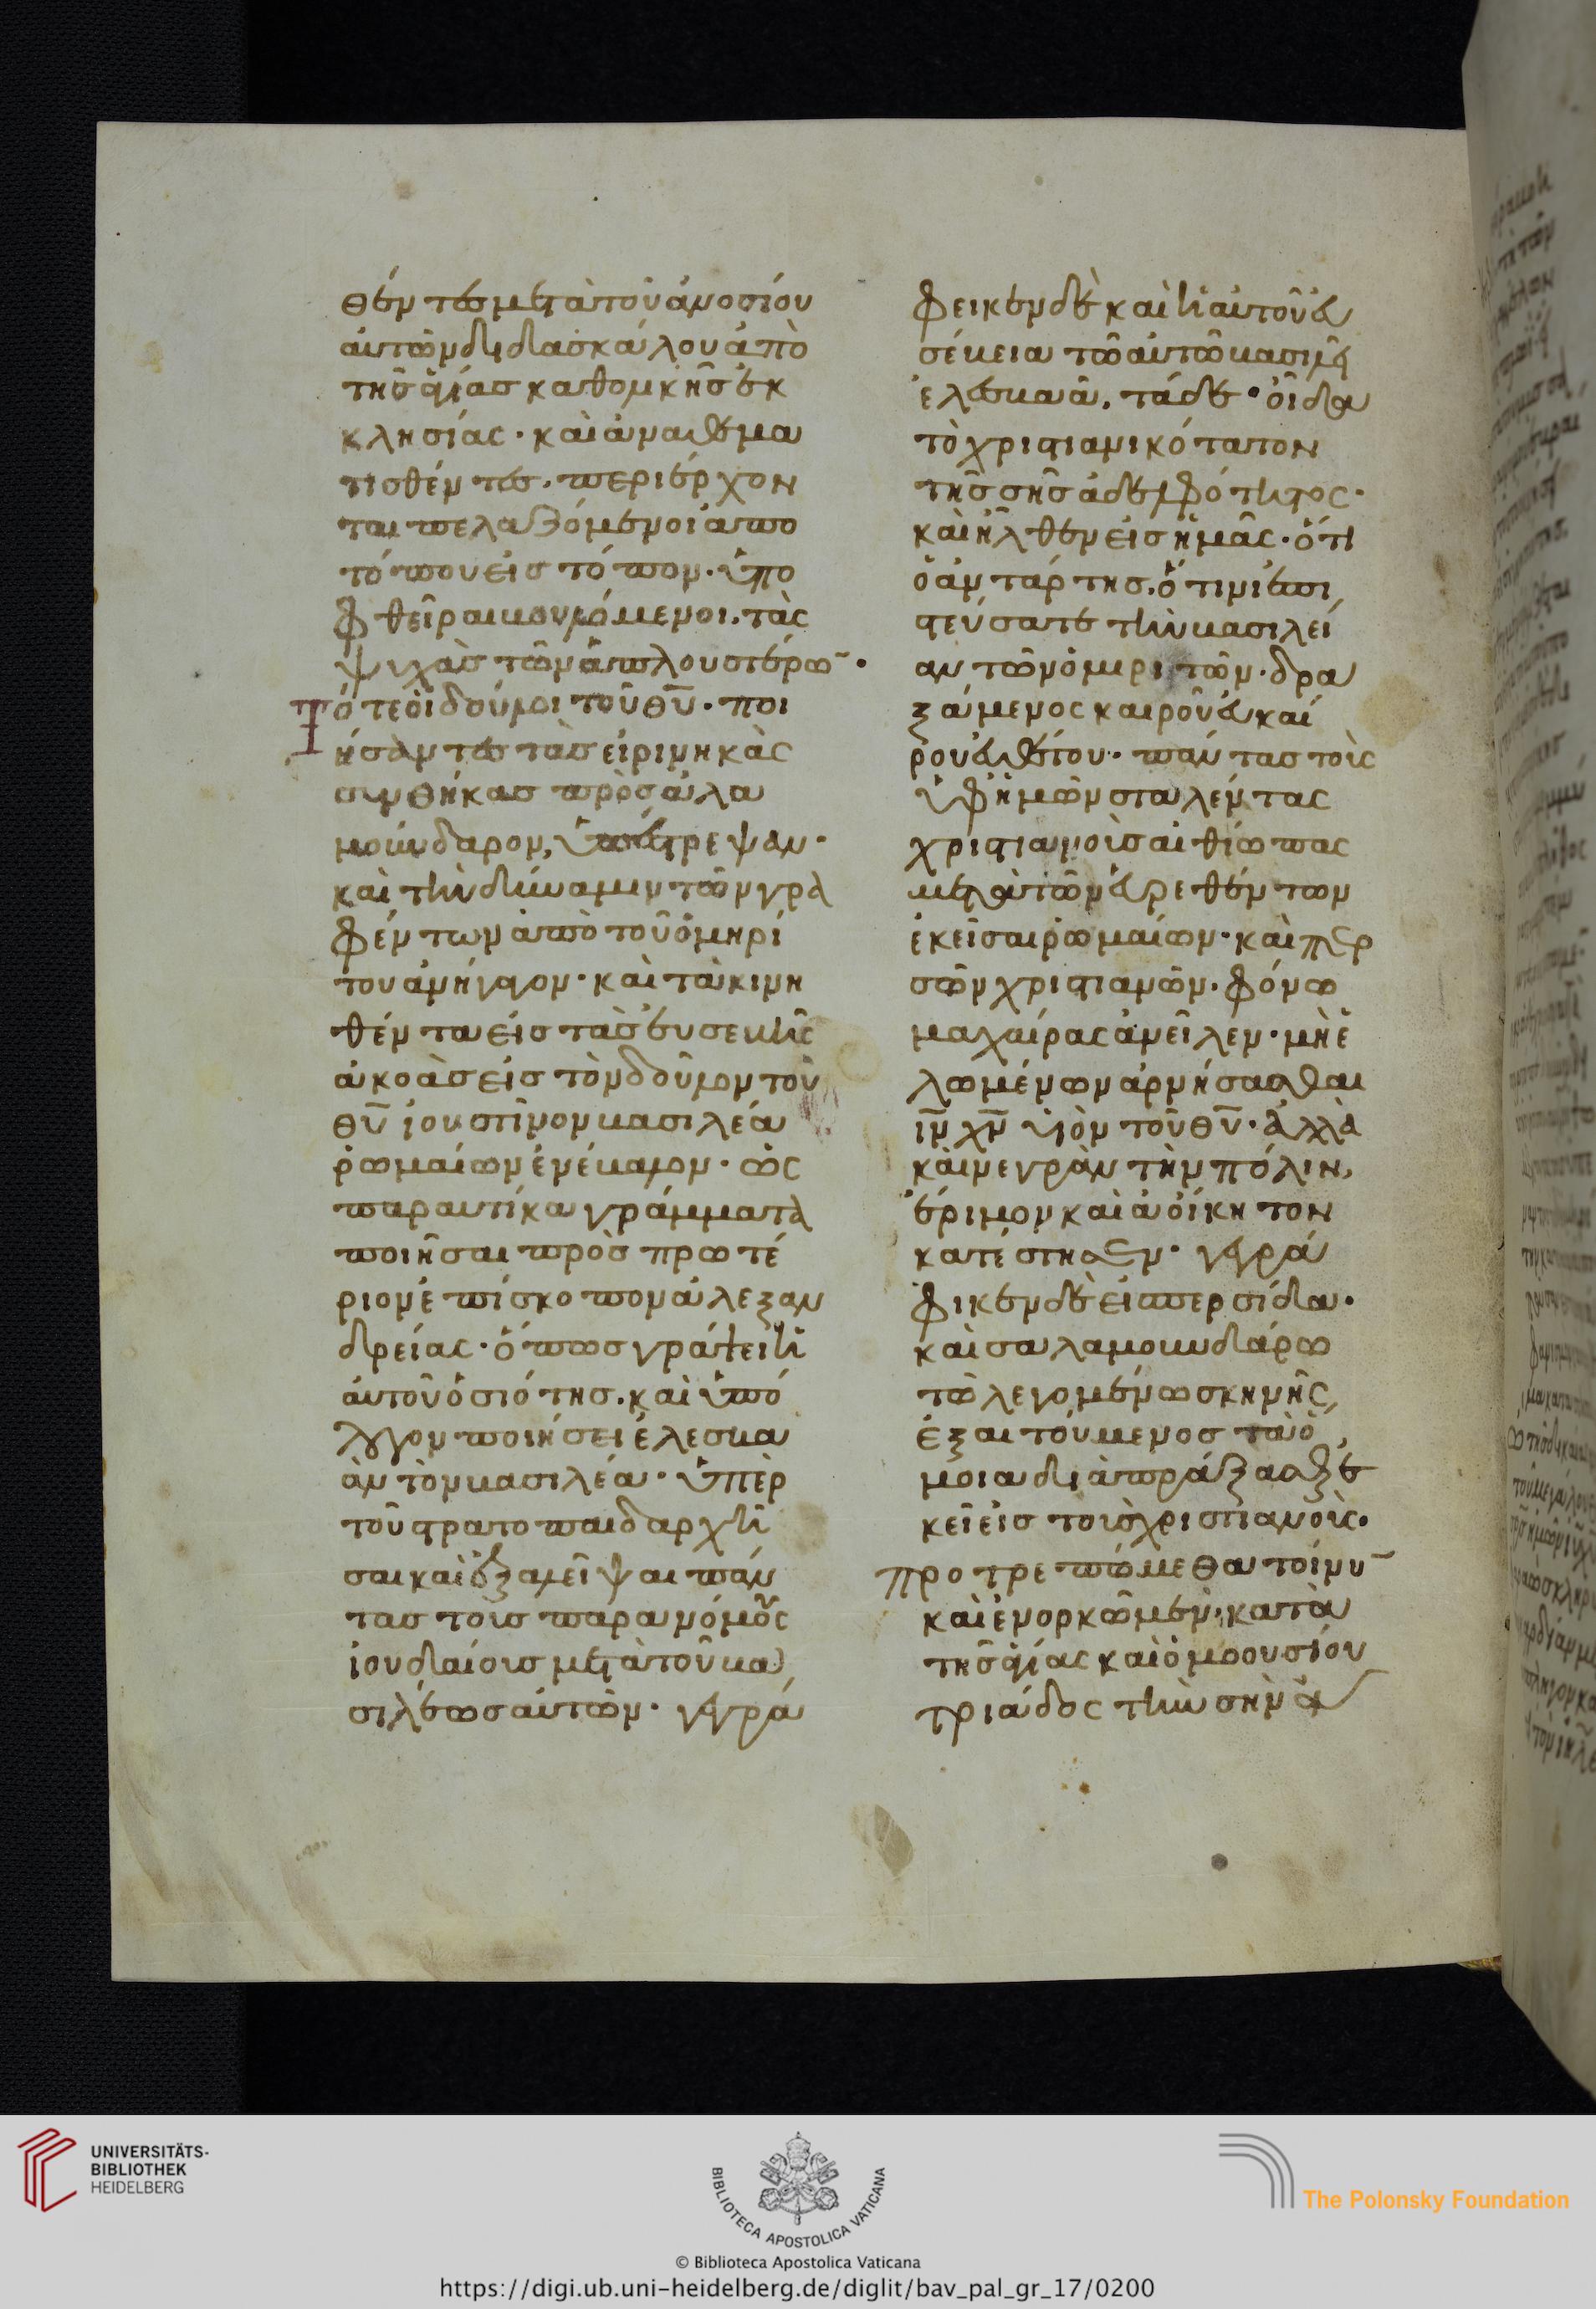 θέντες μετὰ τοῦ ἀνοσίου
αὐτῶν διδασκάλου ἀπὸ
τῆς ἁγίας καθολικῆς ἐκ
κλησίας· καὶ ἀναθεμα
τισθέντες. περιέρχον
ται πελαζόμενοι ἀπο
τόπου εἰς τόπον· ὑπο
φθεῖραι βουλόμενοι. τὰς
ψυχὰς τῶν ἁπλουστέρω̅·
Τότε οἱ δοῦλοι τοῦ θ̅υ̅· ποι
ήσαντες τὰς εἰρινηκὰς
συνθήκας πρὸς ἀλα
μούνδαρον, ὑπέστρεψαν·
καὶ τὴν δύναμιν τῶν γρα
φέντων ἀπὸ τοῦ ὁμηρί
του ἀνήγαγον· καὶ τὰ κινη
θέντα εἰς τὰς εὐσεβεῖς
ἀκοὰς εἰς τὸν δοῦλον τοῦ
θ̅υ̅ ἰουστῖνον βασιλέα
ῥωμαίων ἐνέβαλον· ὡς
παραυτίκα γράμματα
ποιῆσαι πρὸς πρωτέ
ριον ἐπίσκοπον ἀλεξαν
δρείας· ὅπως γράψει ἡ
αὐτοῦ ὁσιότης. καὶ ὑπό
λογον ποιήσει ἐλεσβα
ὰν τὸν βασιλέα· ὑπὲρ
τοῦ στρατοπαιδαρχῆ
σαι καὶ ἐξαμεῖψαι πάν
τας τοὺς παρανόμους
ἰουδαίους μετὰ τοῦ βα
σιλέως αὐτῶν· γέγρα
φεικεν δὲ καὶ ἡ αὐτοῦ εὐ
σέβεια τῶ αὐτῶ βασιλεῖ
ἐλεσβαᾶ. τάδε· οἶδα
τὸ χριστιανικότατον
τῆς σῆς ἀδελφότητος·
καὶ ἦλθεν εἰς ἡμᾶς· ὅτι
ὁ ἀντάρτης. ὅτινι ἐπι
στεύσατε τὴν βασιλεί
αν τῶν ὁμιριτῶν· δρα
ξάμενος καιροῦ εὐκαί
ρου εὐθέτου· πάντας τοὺς
ὑφ ἡμῶν σταλέντας
χριστιανοὺς αἰθίωπας
μετὰ τῶν εὑρεθέντων
ἐκεῖσαι ῥωμαίων· καὶ περ
σῶν χριστιανῶν. φόνω
μαχαίρας ἀνεῖλεν· μὴ ἑ
λωμένων ἀρνήσασθαι
ι̅ν̅ χ̅ν̅ υἱὸν τοῦ θ̅υ̅· ἀλλὰ
καὶ νεγρὰν τὴν πόλιν,
ἔριμον καὶ ἀοίκητον
κατέστησεν· γέγρά
φικεν δὲ εἰ περσίδα·
καὶ σαλαμουνδάρω
τῶ λεγομένω σκηνῆς,
ἐξαιτούμενος τὰ ὅ
μοια διαπράξασθε
κεῖ εἰς τοὺς χριστιανούς·
προτρεπώμεθα τοίνυ̅
καὶ ἐνορκῶμεν, κατὰ
τῆς ἁγίας καὶ ὁμοουσίου
τριάδος τὴν σὴν ἀγ
UNIVERSITÄTS-
BIBLIOTHEK
HEIDELBERG
BIBLIOTECA APOSTOLICA VATICANA
The Polonsky Foundation
© Biblioteca Apostolica Vaticana
https://digi.ub.uni-heidelberg.de/diglit/bav_pal_gr_17/0200